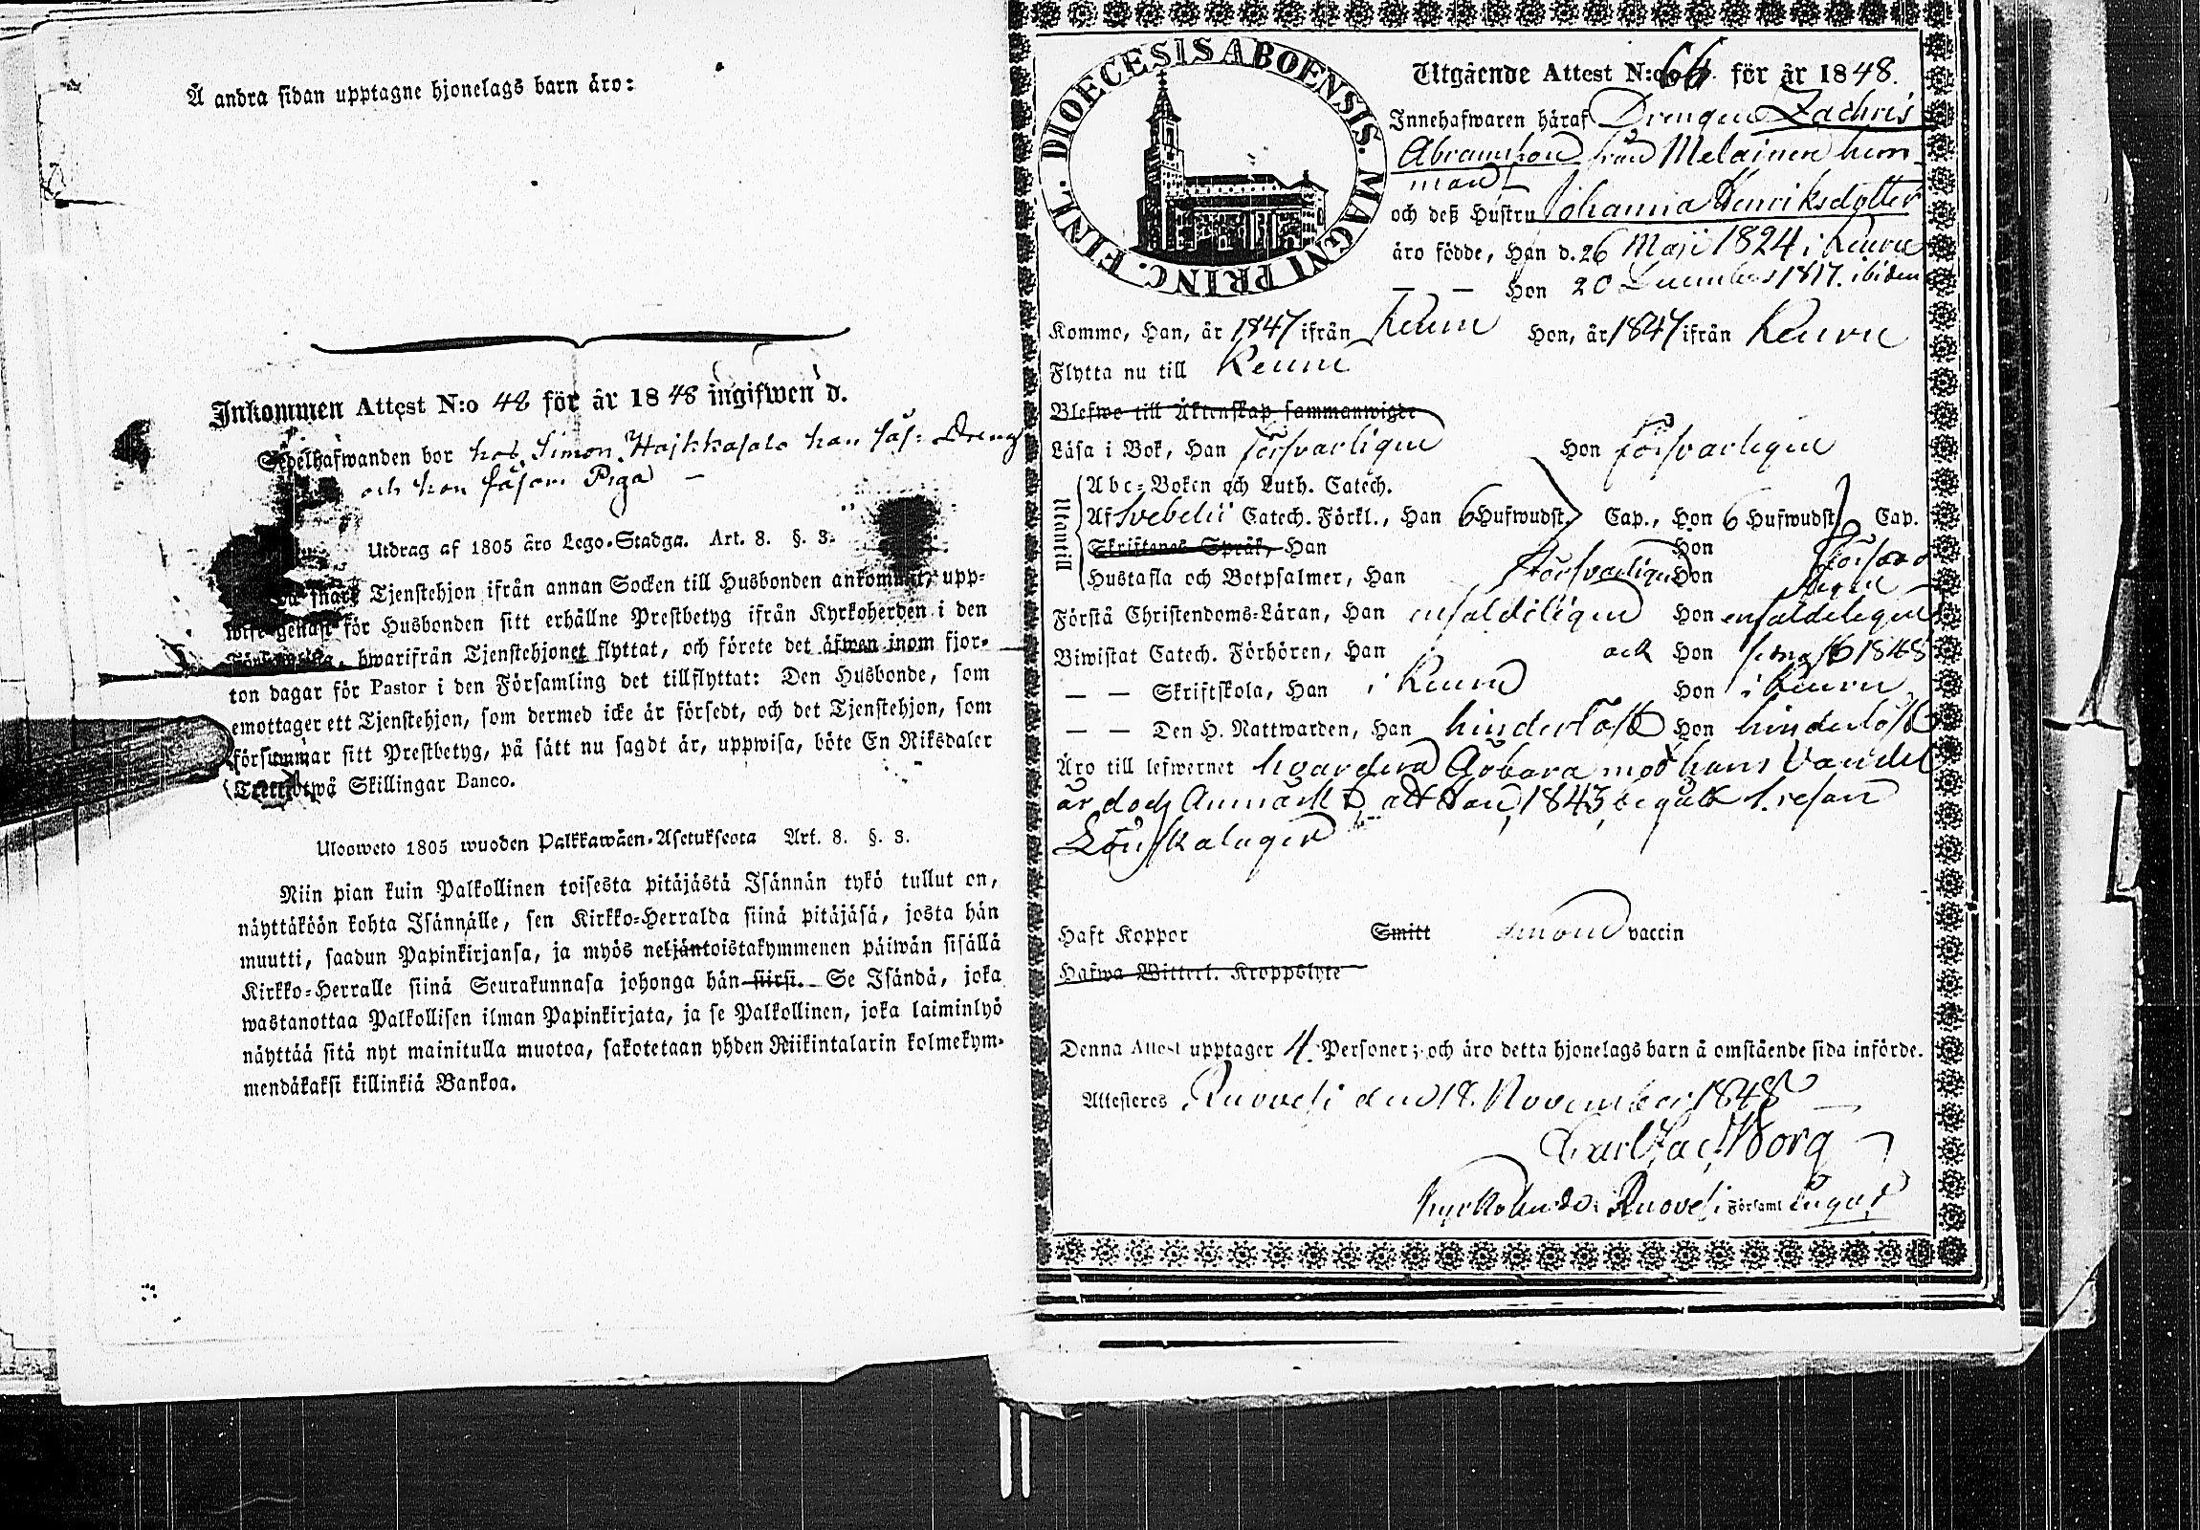 Å andra sidan upptagne hjonelags barn äro:
Inkommen Attest N:o 48 för år 1848 ingifwen d.
Sedelhafwanden bor hos Simon Hajkkasalo han såS: Dreng
och hon såsom Piga —
Utdrag af 1805 års Lego-Stadga. Art. 8. §. 3.
snart Tjenstehjon ifrån annan Socken till Husbonden ankommit, upp-
wise genast för Husbonden sitt erhållne Prestbetyg ifrån Kyrkoherden i den
hwarifrån Tjenstehjonet flyttat, och förete det äfwen inom fjor-
ton dagar för Pastor i den Församling det tillflyttat: Den Husbonde, som
emottager ett Tjenstehjon, som dermed icke är försedt, och det Tjenstehjon, som
försummar sitt Prestbetyg, på sätt nu sagdt är, uppwisa, böte En Riksdaler
Trettiotwå Skillingar Banco.
Ulosweto 1805 wuoden Palkkawäen-Asetuksesta Art. 8. §. 3.
Niin pian kuin Palkollinen toisesta pitäjästä Isännän tykö tullut on,
näyttäköön kohta Isännälle, sen Kirkko-Herralda siinä pitäjäsä, josta hän
muutti, saadun Papinkirjansa, ja myös neljäntoistakymmenen päiwän sisällä
Kirkko-Herralle siinä Seurakunnasa johonga hän siirsi. Se Isändä, joka
wastanottaa Palkollisen ilman Papinkirjata, ja se Palkollinen, joka laiminlyö
näyttää sitä nyt mainitulla muotoa, sakotetaan yhden Riikintalarin kolmekym-
mendäkaksi killinkiä Bankoa.
DIOECESIS ABOENSIS. MAGNI PRINC. FINL.
Utgående Attest N:o 66 för år 1848.
Innehafwaren häraf Drengen Zachris
Abramsson från Melainen hem
man
och deß Hustru Johanna Henriksdotter
äro födde, Han d. 26 Maji 1824 i Keuru
— — Hon 20 December 1817. ibidem
Kommo, Han, år 1847 ifrån Keuru Hon, år 1847 ifrån Keuru
Flytta nu till Keuru
Blefwo till Äktenskap sammanwigde
Läsa i Bok, Han försvarligen Hon försvarligen
Utantill
Abc-Boken och Luth. Catech.
Af Svebelii Catech. Förkl., Han 6 Hufwudst. Cap., Hon 6 Hufwudst. Cap.
Skriftenes Språk, Han Hon
Hustafla och Botpsalmer, Han försvarligen Hon försvar
ligen
Förstå Christendoms-Läran, Han enfaldeligen Hon enfaldeligen
Biwistat Catech. Förhören, Han och Hon 1848
— — Skriftskola, Han i Keuru Hon i Keuru
— — Den H. Nattwarden, Han hinderlöst Hon hinderlöst
Äro till lefwernet hvardera Ärbara mod hans Vandel
är dock Anmärkt att han 1843 begått 1. resan
Lönskaläger
Haft Koppor Smitt genom vaccin
Hafwa Witterl. Kroppslyte
Denna Attest upptager 4. Personer; och äro detta hjonelags barn å omstående sida införde.
Attesteres Ruovesi den 18. November 1848
Carl Zach. Borg
Kyrkoherde i Ruovesi Församlingar